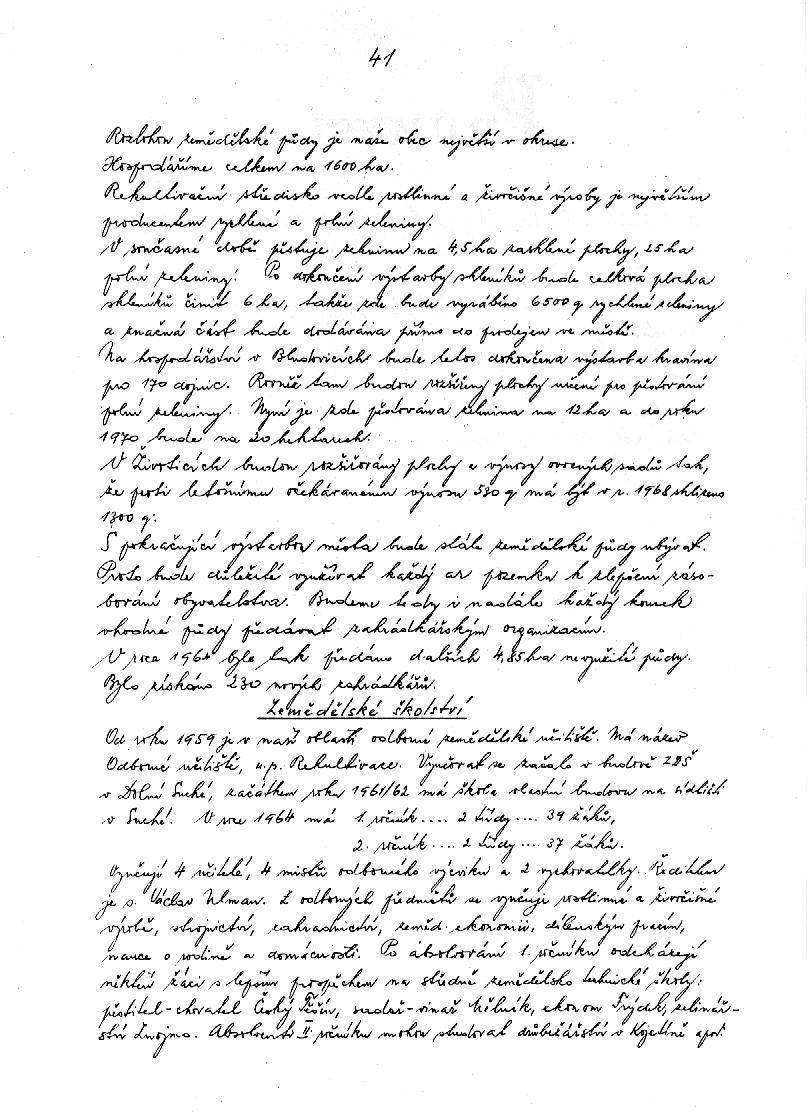 41
Rozlohou zemědělské půdy je naše obec největší v okrese.
Hospodaříme celkem na 1600 ha.
Rekultivační středisko vedle rostlinné a živočišné výroby je největším
producentem rychlené a polní zeleniny.
V současné době pěstuje zeleninu na 4,5 ha zasklené plochy, 25 ha
polní zeleniny. Po dokončení výstavby skleníků bude celková plocha
skleníků činit 6 ha, takže zde bude vyráběno 6500 q rychlené zeleniny
a značná část bude dodávána přímo do prodejen ve městě.
Na hospodářství v Bludovicích bude letos dokončena výstavba kravína
pro 170 dojnic. Rovněž tam budou rozšířeny plochy určené pro pěstování
polní zeleniny. Nyní je zde pěstována zelenina na 12 ha a do roku
1970 bude na 20 hektarech.
V Životicích budou rozšiřovány plochy a výnosy ovocných sadů tak,
že proti letošnímu očekávanému výnosu 530 q má být v r. 1968 sklizeno
1300 q.
S pokračující výstavbou města bude stále zemědělské půdy ubývat.
Proto bude důležité využívat každý ar pozemku k zlepšení záso-
bování obyvatelstva. Budeme tedy i nadále každý kousek
vhodné půdy předávat zahrádkářským organizacím.
V roce 1964 bylo tak předáno dalších 4,85 ha nevyužité půdy.
Bylo získáno 230 nových zahrádkářů.
Zemědělské školství
Od roku 1959 je v naší oblasti odborné zemědělské učiliště. Má název
Odborné učiliště, n.p. Rekultivace. Vyučovat se začalo v budově ZDŠ
v Dolní Suché, začátkem roku 1961/62 má škola vlastní budovu na sídlišti
v Suché. V roce 1964 má 1. ročník .... 2 třídy .... 39 žáků,
2. ročník .... 2 třídy .... 37 žáků.
Vyučují 4 učitelé, 4 mistři odborného výcviku a 2 vychovatelky. Ředitelem
je s. Václav Ulman. Z odborných předmětů se vyučuje rostlinné a živočišné
výrobě, strojnictví, zahradnictví, zeměd. ekonomii, dílenským pracím,
nauce o rodině a domácnosti. Po absolvování 1. ročníku odcházejí
někteří žáci s lepším prospěchem na středně zemědělsko technické školy:
pěstitel-chovatel Český Těšín, sadař-vinař Mělník, ekonom Frýdek, zelinář-
ství Znojmo. Absolventi II. ročníku mohou studovat drůbežářství v Kojetíně apod.